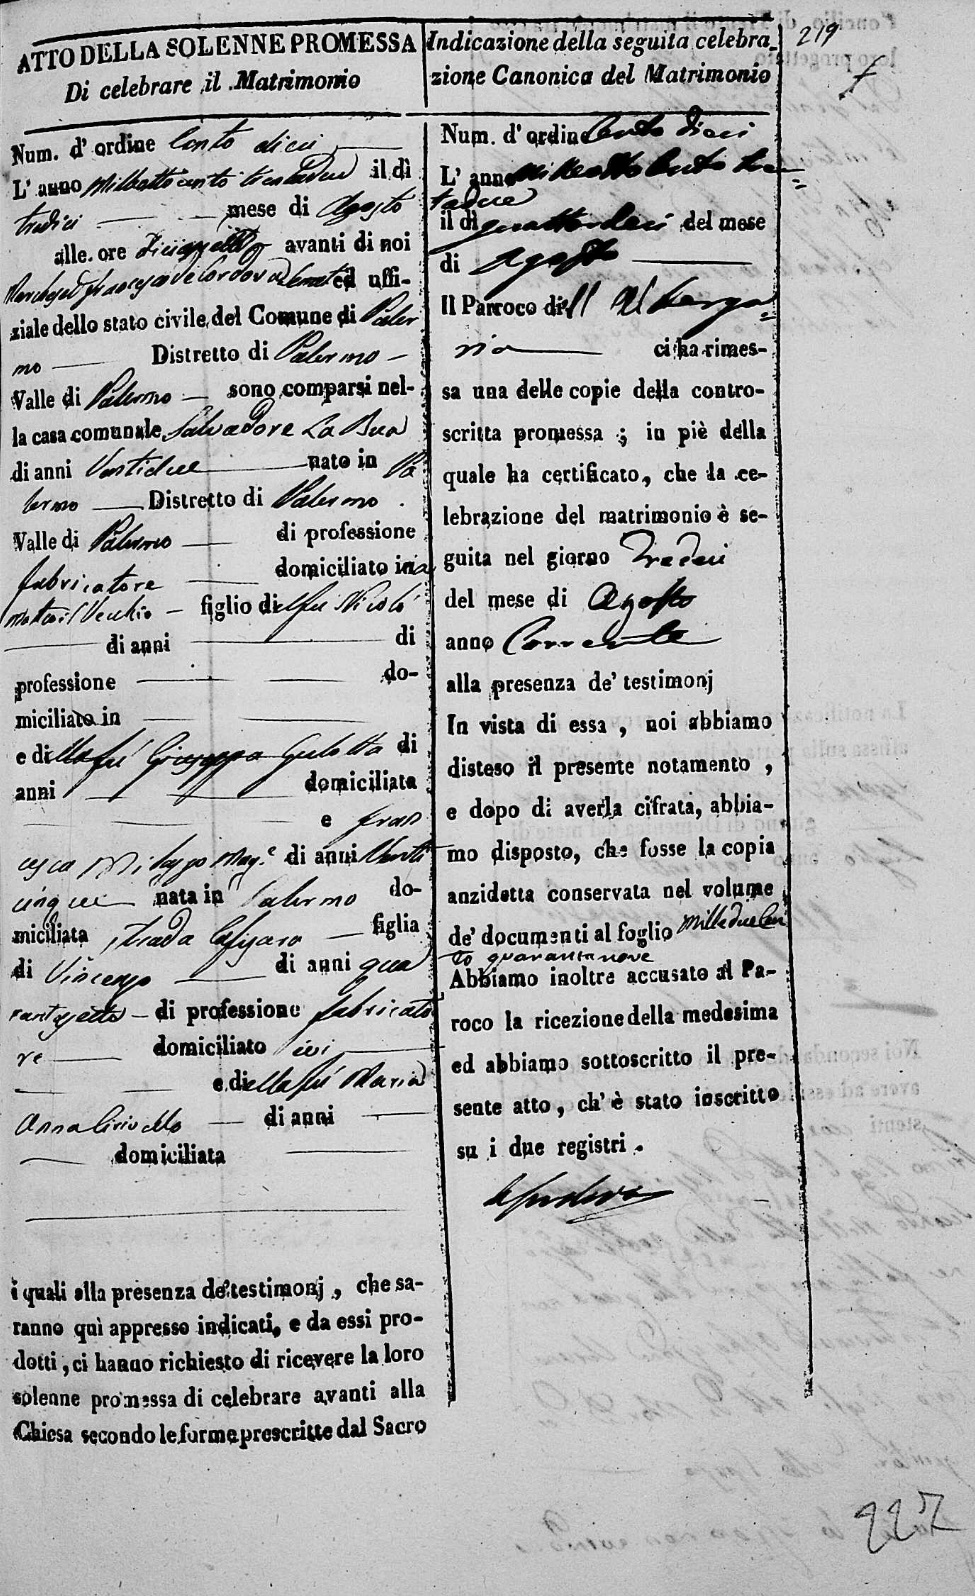 219
ATTO DELLA SOLENNE PROMESSA
Di celebrare il Matrimonio
Num. d' ordine Cento dieci
L' anno Milleottocento trentadue il dì
tredici mese di Agosto
alle ore avanti di noi
ed uffi-
ziale dello stato civile del Comune di Paler
mo Distretto di Palermo
Valle di Palermo sono comparsi nel-
la casa comunale Salvadore La Bua
di anni Ventidue nato in Pa
lermo Distretto di Palermo
Valle di Palermo di professione
fabricatore domiciliato in
Vecchio figlio del fu Nicolò
di anni di
professione do-
miciliato in
e della fu Giuseppa Gulotta di
anni domiciliata
e Fran
cesca di anni Venti
cinque nata in Palermo do-
miciliata strada figlia
di Vincenzo di anni qua
rantasette di professione fabricato
re domiciliato ivi
e della fu Maria
Anna di anni
domiciliata
i quali alla presenza de' testimonj, che sa-
ranno quì appresso indicati, e da essi pro-
dotti, ci hanno richiesto di ricevere la loro
solenne promessa di celebrare avanti alla
Chiesa secondo le forme prescritte dal Sacro
Indicazione della seguita celebra-
zione Canonica del Matrimonio
Num. d' ordine Cento dieci
L' anno Milleottocento tren=
tadue
il dì quattordeci del mese
di Agosto
Il Parroco di ll Alberga=
ria ci ha rimes-
sa una delle copie della contro-
scritta promessa ; in piè della
quale ha certificato, che la ce-
lebrazione del matrimonio è se-
guita nel giorno Tredeci
del mese di Agosto
anno Corrente
alla presenza de' testimonj
In vista di essa, noi abbiamo
disteso il presente notamento,
e dopo di averla cifrata, abbia-
mo disposto, che fosse la copia
anzidetta conservata nel volume
de' documenti al foglio Milleduecen
to quarantanove
Abbiamo inoltre accusato al Pa-
roco la ricezione della medesima
ed abbiamo sottoscritto il pre-
sente atto, ch' è stato inscritto
su i due registri.
227